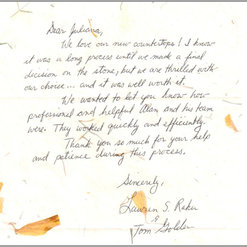 Dear Juliana,
We love our new countertops! I know
it was a long process until we made a final
decision on the stone, but we are thrilled with
our choice... and it was well worth it.
We wanted to let you know how
professional and helpful Alan and his team
were. They worked quickly and efficiently.
Thank you so much for your help
and patience during this process.
Sincerely,
Lauren S.
&
Tom